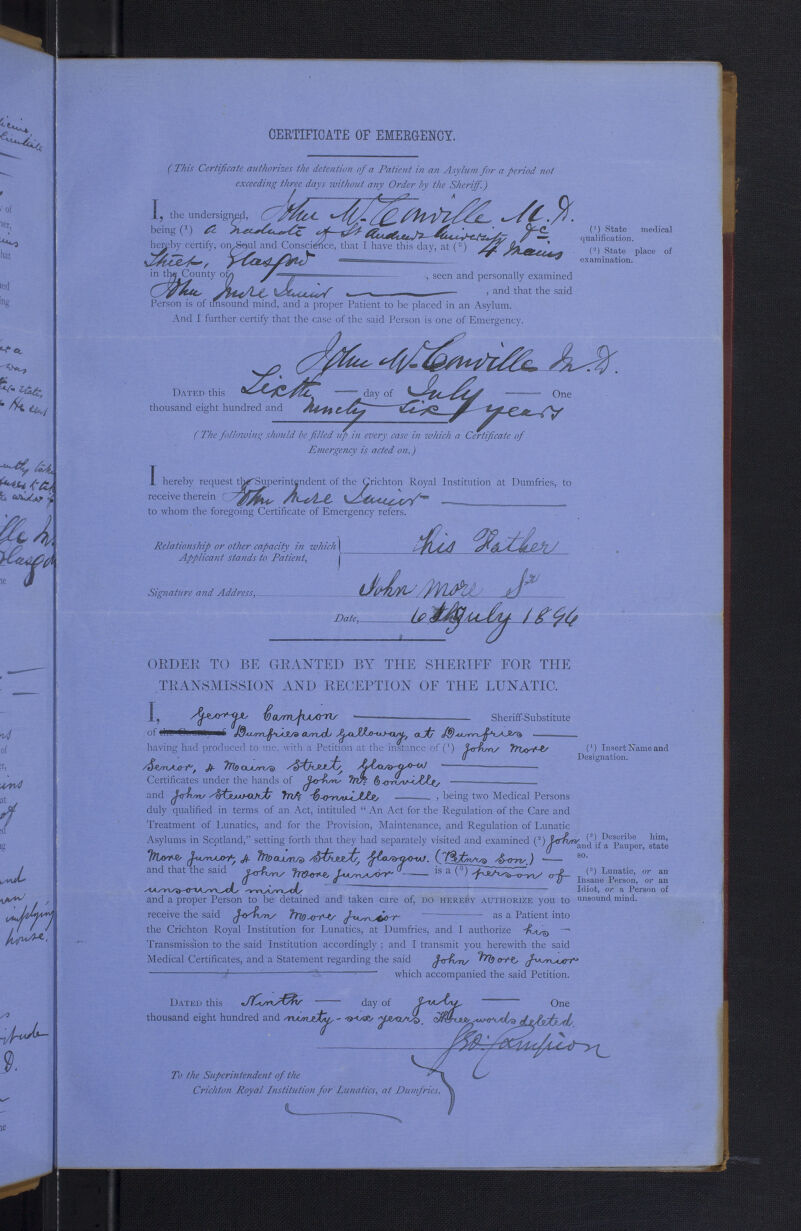 CERTIFICATE OF EMERGENCY.
(This Certificate authorizes the detention of a Patient in an Asylum for a period not
exceeding three days without any Order by the Sheriff.)
I, the undersigned, John McConville M.D.
being (¹) a Graduate of St Andrews University &c
(¹) State medical
qualification.
hereby certify, on Soul and Conscience, that I have this day, at (²) 4 Mains
(²) State place of
examination.
Street, Glasgow
in the County of , seen and personally examined
John More Junior , and that the said
Person is of unsound mind, and a proper Patient to be placed in an Asylum.
And I further certify that the case of the said Person is one of Emergency.
John McConville M.D.
DATED this Sixth day of July One
thousand eight hundred and ninety six years
(The following should be filled up in every case in which a Certificate of
Emergency is acted on.)
I hereby request the Superintendent of the Crichton Royal Institution at Dumfries, to
receive therein John More Junior
to whom the foregoing Certificate of Emergency refers.
Relationship or other capacity in which
Applicant stands to Patient, his Father
Signature and Address, John More Sr
Date, 6th July 1896
ORDER TO BE GRANTED BY THE SHERIFF FOR THE
TRANSMISSION AND RECEPTION OF THE LUNATIC.
I, George Campion Sheriff-Substitute
of the County of Dumfries and Galloway, at Dumfries
having had produced to me, with a Petition at the instance of (¹) John More
(¹) Insert Name and
Designation.
Senior, 4 Mains Street, Glasgow
Certificates under the hands of John McConville,
and John Stewart McConville , being two Medical Persons
duly qualified in terms of an Act, intituled "An Act for the Regulation of the Care and
Treatment of Lunatics, and for the Provision, Maintenance, and Regulation of Lunatic
Asylums in Scotland," setting forth that they had separately visited and examined (²) John
(²) Describe him,
and if a Pauper, state
so.
More Junior, 4 Mains Street, Glasgow. (Petnrs Son.)
and that the said John More Junior is a (³) person of
(³) Lunatic, or an
Insane Person, or an
Idiot, or a Person of
unsound mind.
unsound mind
and a proper Person to be detained and taken care of, DO HEREBY AUTHORIZE you to
receive the said John More Junior as a Patient into
the Crichton Royal Institution for Lunatics, at Dumfries, and I authorize his
Transmission to the said Institution accordingly; and I transmit you herewith the said
Medical Certificates, and a Statement regarding the said John More Junior
which accompanied the said Petition.
DATED this Ninth day of July One
thousand eight hundred and ninety-six years. Three words deleted.
Geo. Campion
To the Superintendent of the
Crichton Royal Institution for Lunatics, at Dumfries.